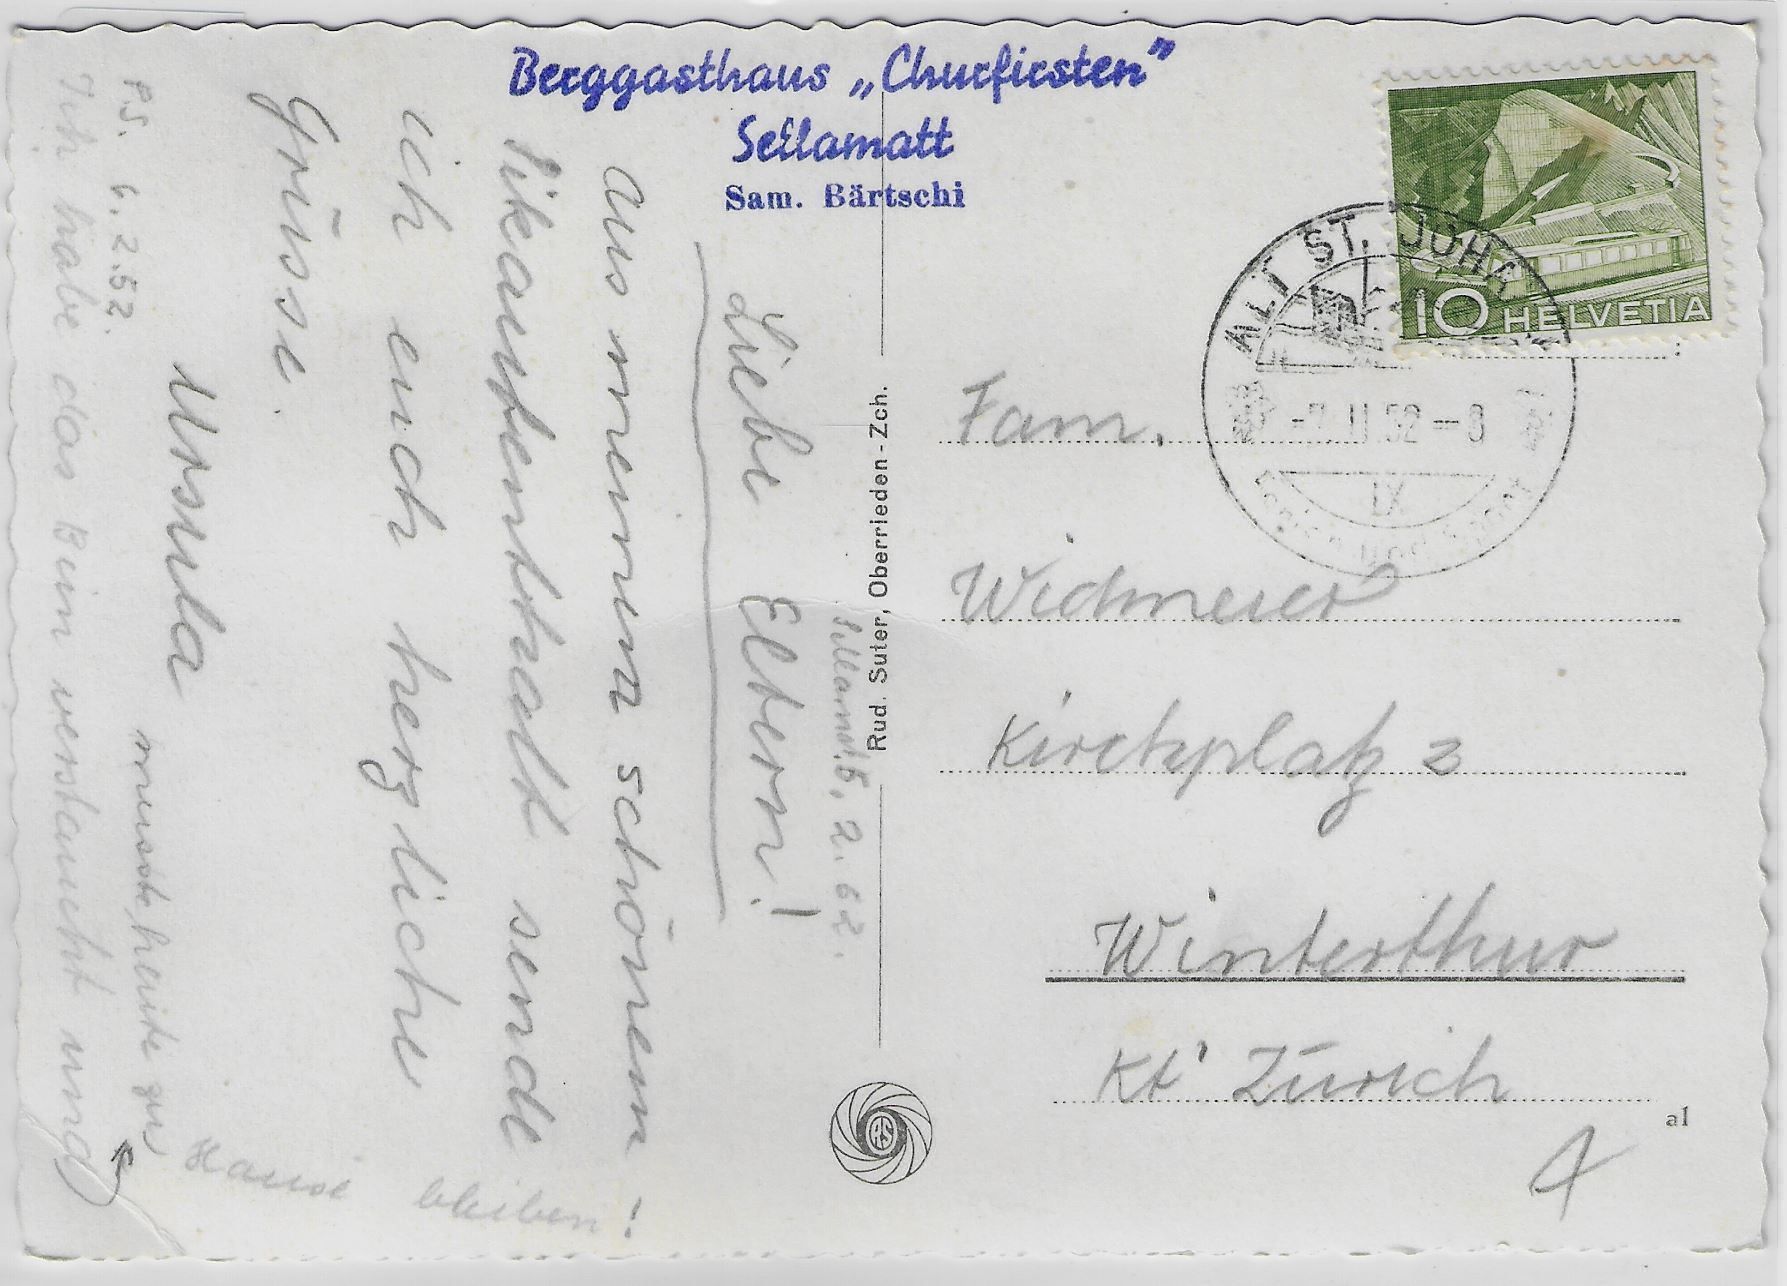 Berggasthaus „Churfirsten"
Sellamatt
Sam. Bärtschi
10 HELVETIA
ALT ST. JOHA
-7. II 52 - 8
IX
Ferien und Sport
Sellamatt, 2. 62.
Liebe Eltern!
Aus meinem schönem
Sikaufenthalt sende
ich euch herzliche
Grüsse.
Ursula
PS. 6. 2. 52.
Ich habe das Bein verstaucht und
musste heute zu
Hause bleiben!
Rud. Suter, Oberrieden - Zch.
RS
Fam.
Widmeier
Kirchplatz 2
Winterthur
Kt' Zürich
a1